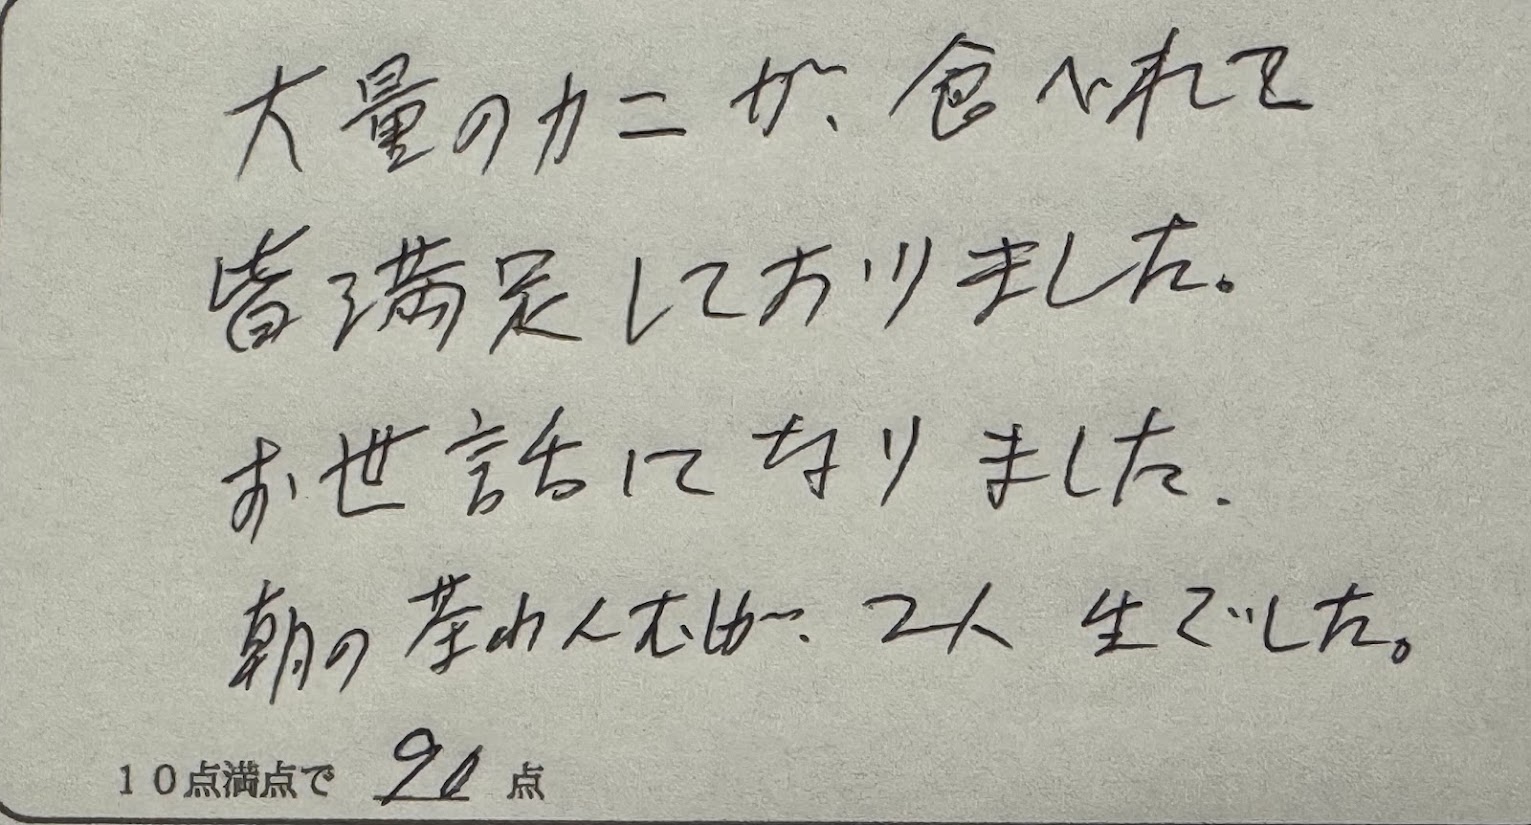 大量のカニが、食べれて
皆満足しておりました。
お世話になりました.
朝の茶わんむしが、2人生でした。
10点満点で 90 点